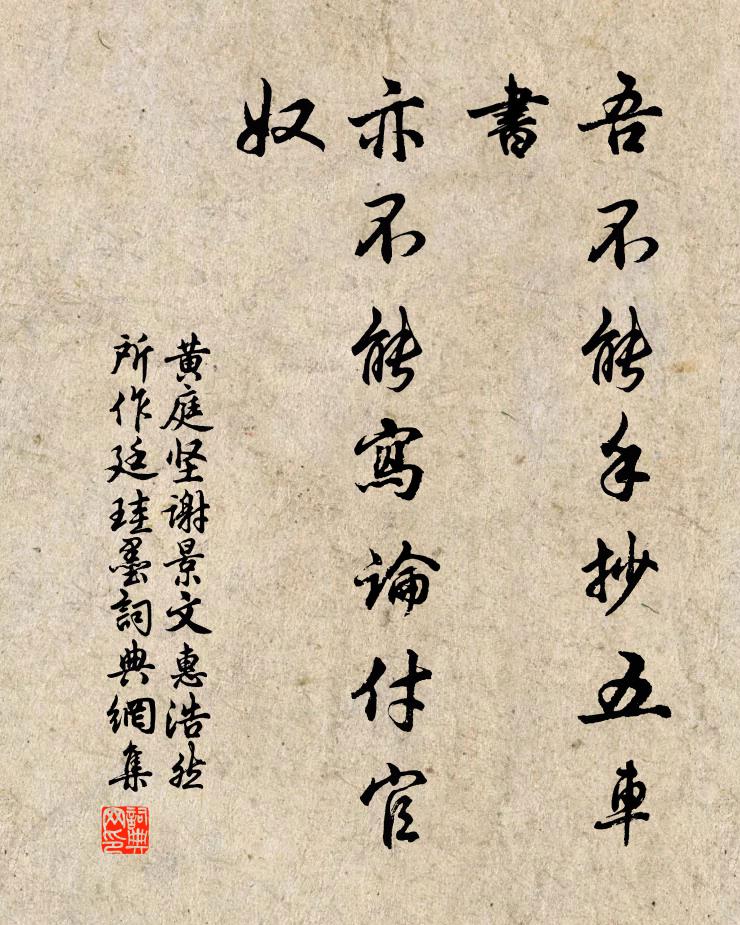 吾不能手抄五車
書
亦不能寫論付官
奴
黄庭坚谢景文惠浩然
所作廷珪墨詞典網集
詞典
网印